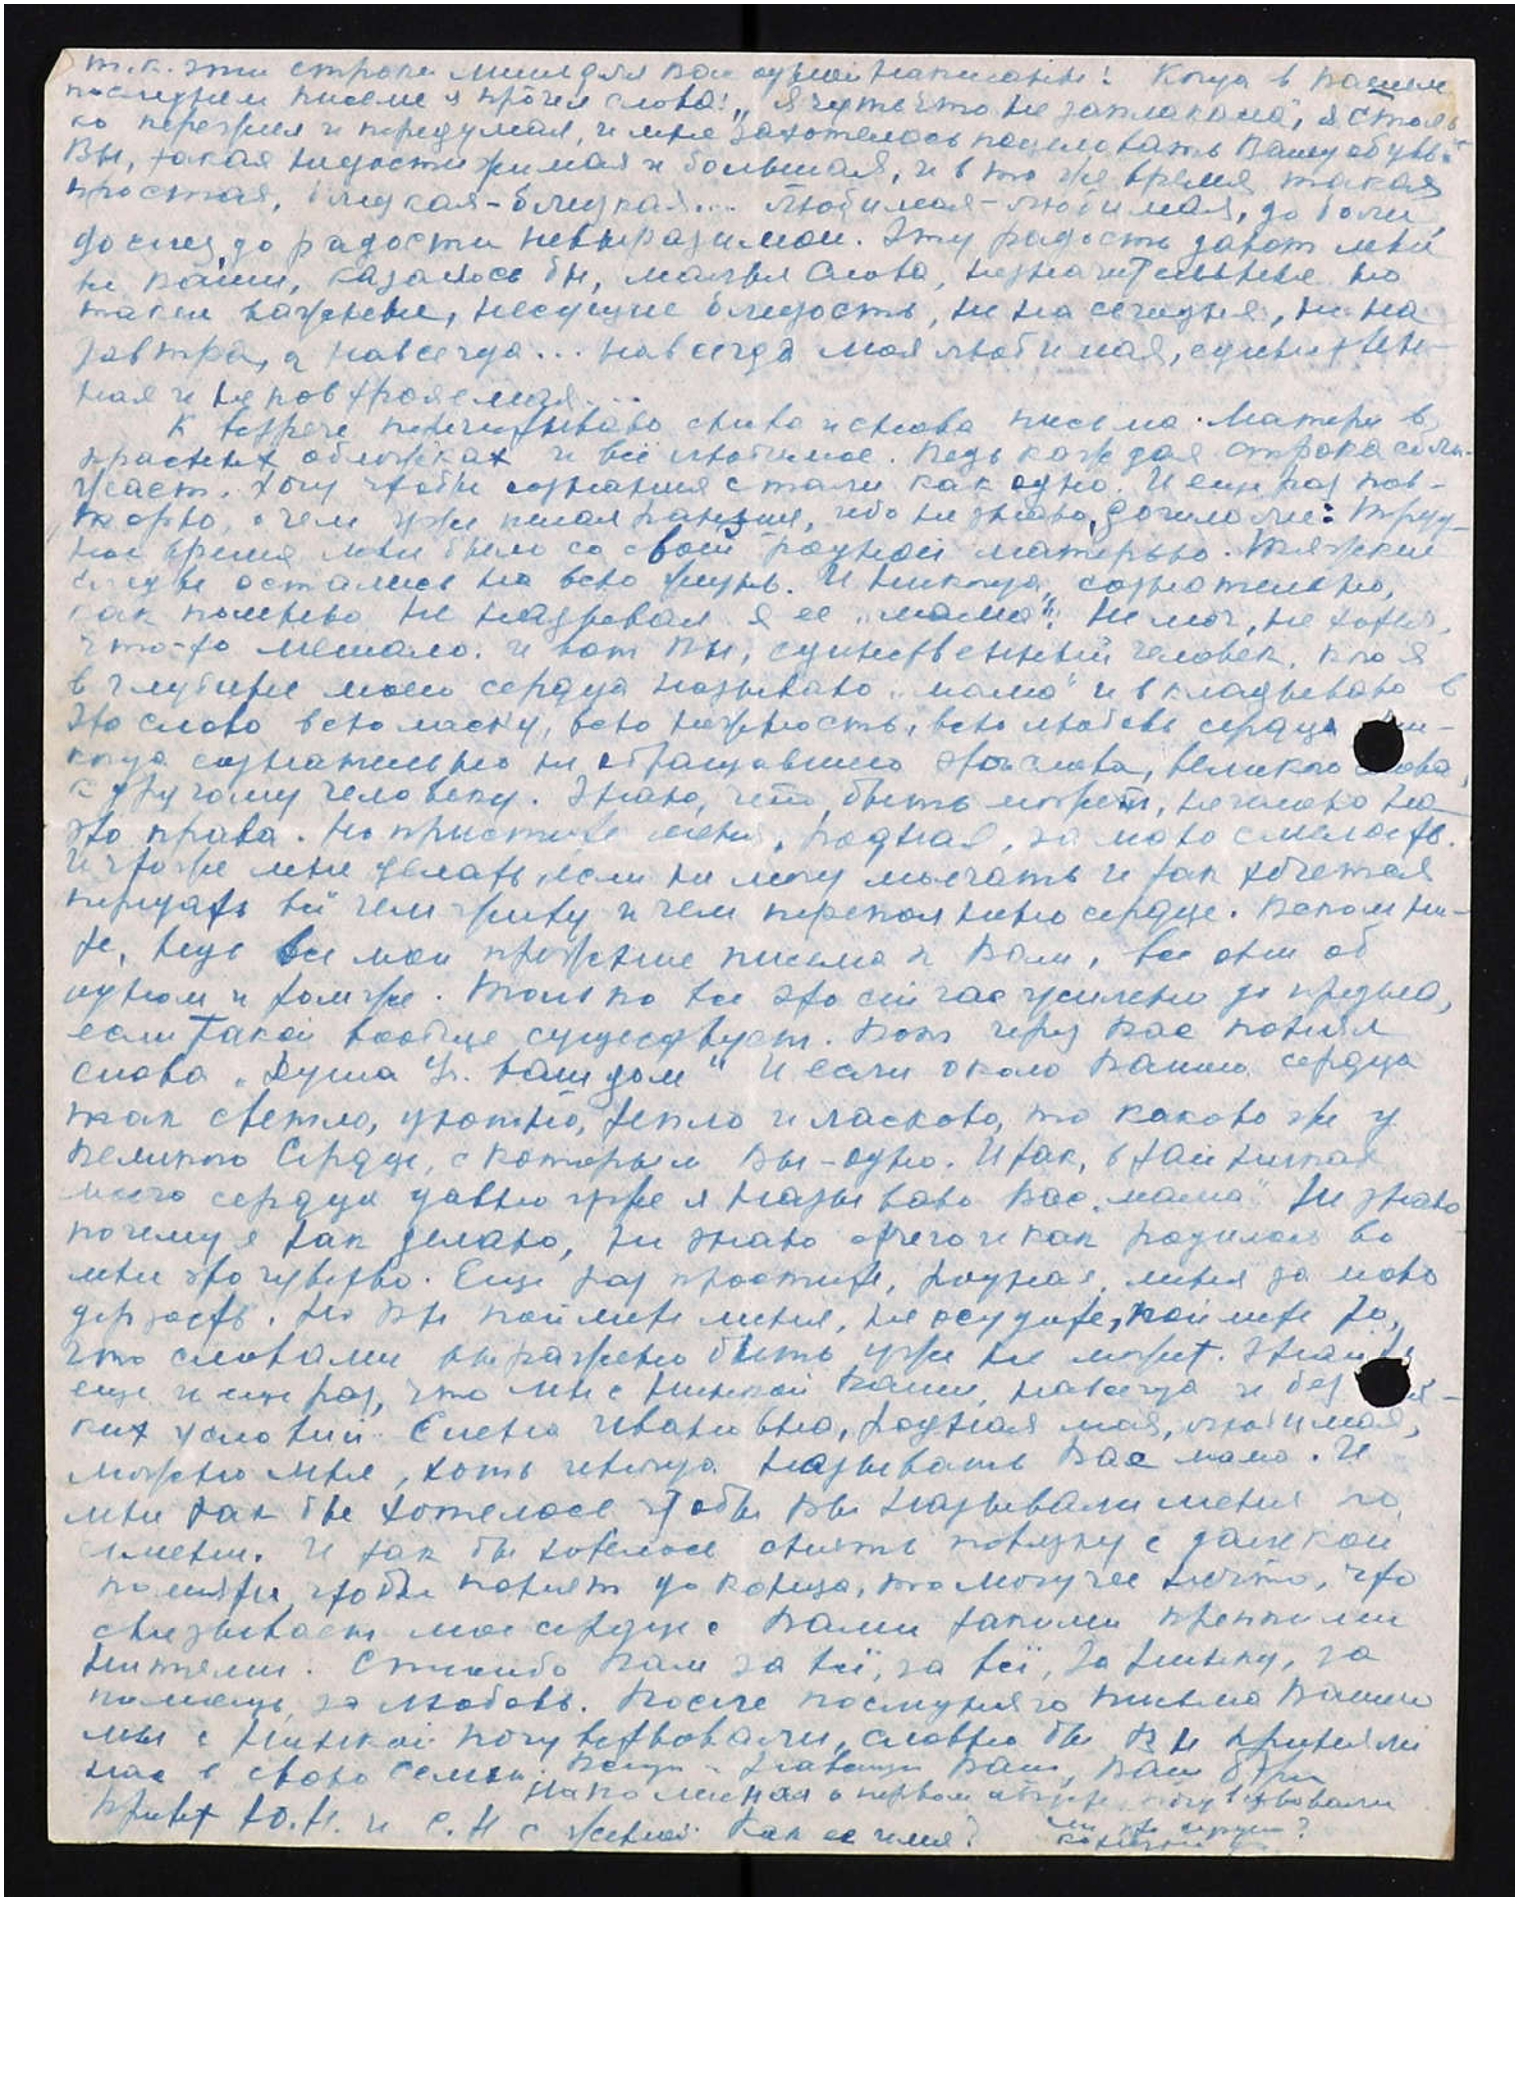 т.к. эти строки мною для Вас одной написаны! Когда в Вашем
последнем письме я прочел слова: „Я чуть что не заплакала", я столь-
ко пережил и передумал, и мне захотелось поцеловать Вашу обувь.
Вы, такая недостижимая и большая, и в то же время такая
простая, близкая-близкая... любимая-любимая, до боли,
до слез, до радости невыразимой. Эту радость дают мне
не Ваши, казалось бы, малые слова, незначительные но
такие важные, несущие близость, не на сегодня, не на
завтра, а навсегда... навсегда моя любимая, единствен-
ная и неповторяемая...
К встрече перечитываю снова и снова письма Матери в
красных обложках и всё любимое. Ведь каждая строка сбли-
жает. Хочу чтобы сознания стали как одно. И еще раз пов-
торю, о чем уже писал раньше, ибо не знаю, дошло ли: Труд-
ное время мне было со своей родной матерью. Тяжкие
следы остались на всю жизнь. И никогда, сознательно,
как помню не называл я ее „мама". Не мог, не хотел,
что-то мешало. И вот Вы, единственный человек, кого я
в глубине моего сердца называю „мама" и вкладываю в
это слово всю ласку, всю нежность, всю любовь сердца ни-
когда сознательно не обращавшего этого слова, великого слова,
к другому человеку. Знаю, что, быть может, не имею на
это права. Но простите меня, родная, за мою смелость.
И что же мне делать, если не могу молчать и так хочется
передать всё чем живу и чем переполнено сердце. Вспомни-
те, ведь все мои прежние письма к Вам, все они об
одном и том же. Только все это сейчас усилено до предела,
если такой вообще существует. Вот через Вас понял
слова „Душа Х. ваш дом" И если около Вашего сердца
так светло, уютно, тепло и ласково, то каково же у
Великого Сердца, с которым Вы - одно. И так, в тайниках
моего сердца давно уже я называю Вас „мама" Не знаю
почему я так делаю, не знаю отчего и как родилось во
мне это чувство. Еще раз простите, родная, меня за мою
дерзость. Но Вы поймете меня, не осудите, поймете то,
что словами выражено быть уже не может. Знайте
еще и еще раз, что мы с Нинкой Ваши, навсегда и без вся-
ких условий. Елена Ивановна, родная моя, любимая,
можно мне, хоть иногда называть Вас мама. И
мне так бы хотелось чтобы Вы называли меня по
имени. И так бы хотелось снять повязку с далекой
памяти, чтобы понять до конца, то могучее нечто, что
связывает мое сердце с Вами такими крепкими
нитями. Спасибо Вам за всё, за всё, за Нинку, за
помощь, за любовь. После последнего письма Вашего
мы с Нинкой почувствовали, словно бы Вы приняли
нас в свою семью. Всегда и навсегда Ваш, Ваш Боря
Напоминая о первом абзаце, почувствовали
Привет Ю.Н. и С.Н с женой. Как ее имя? ли это сердцем?